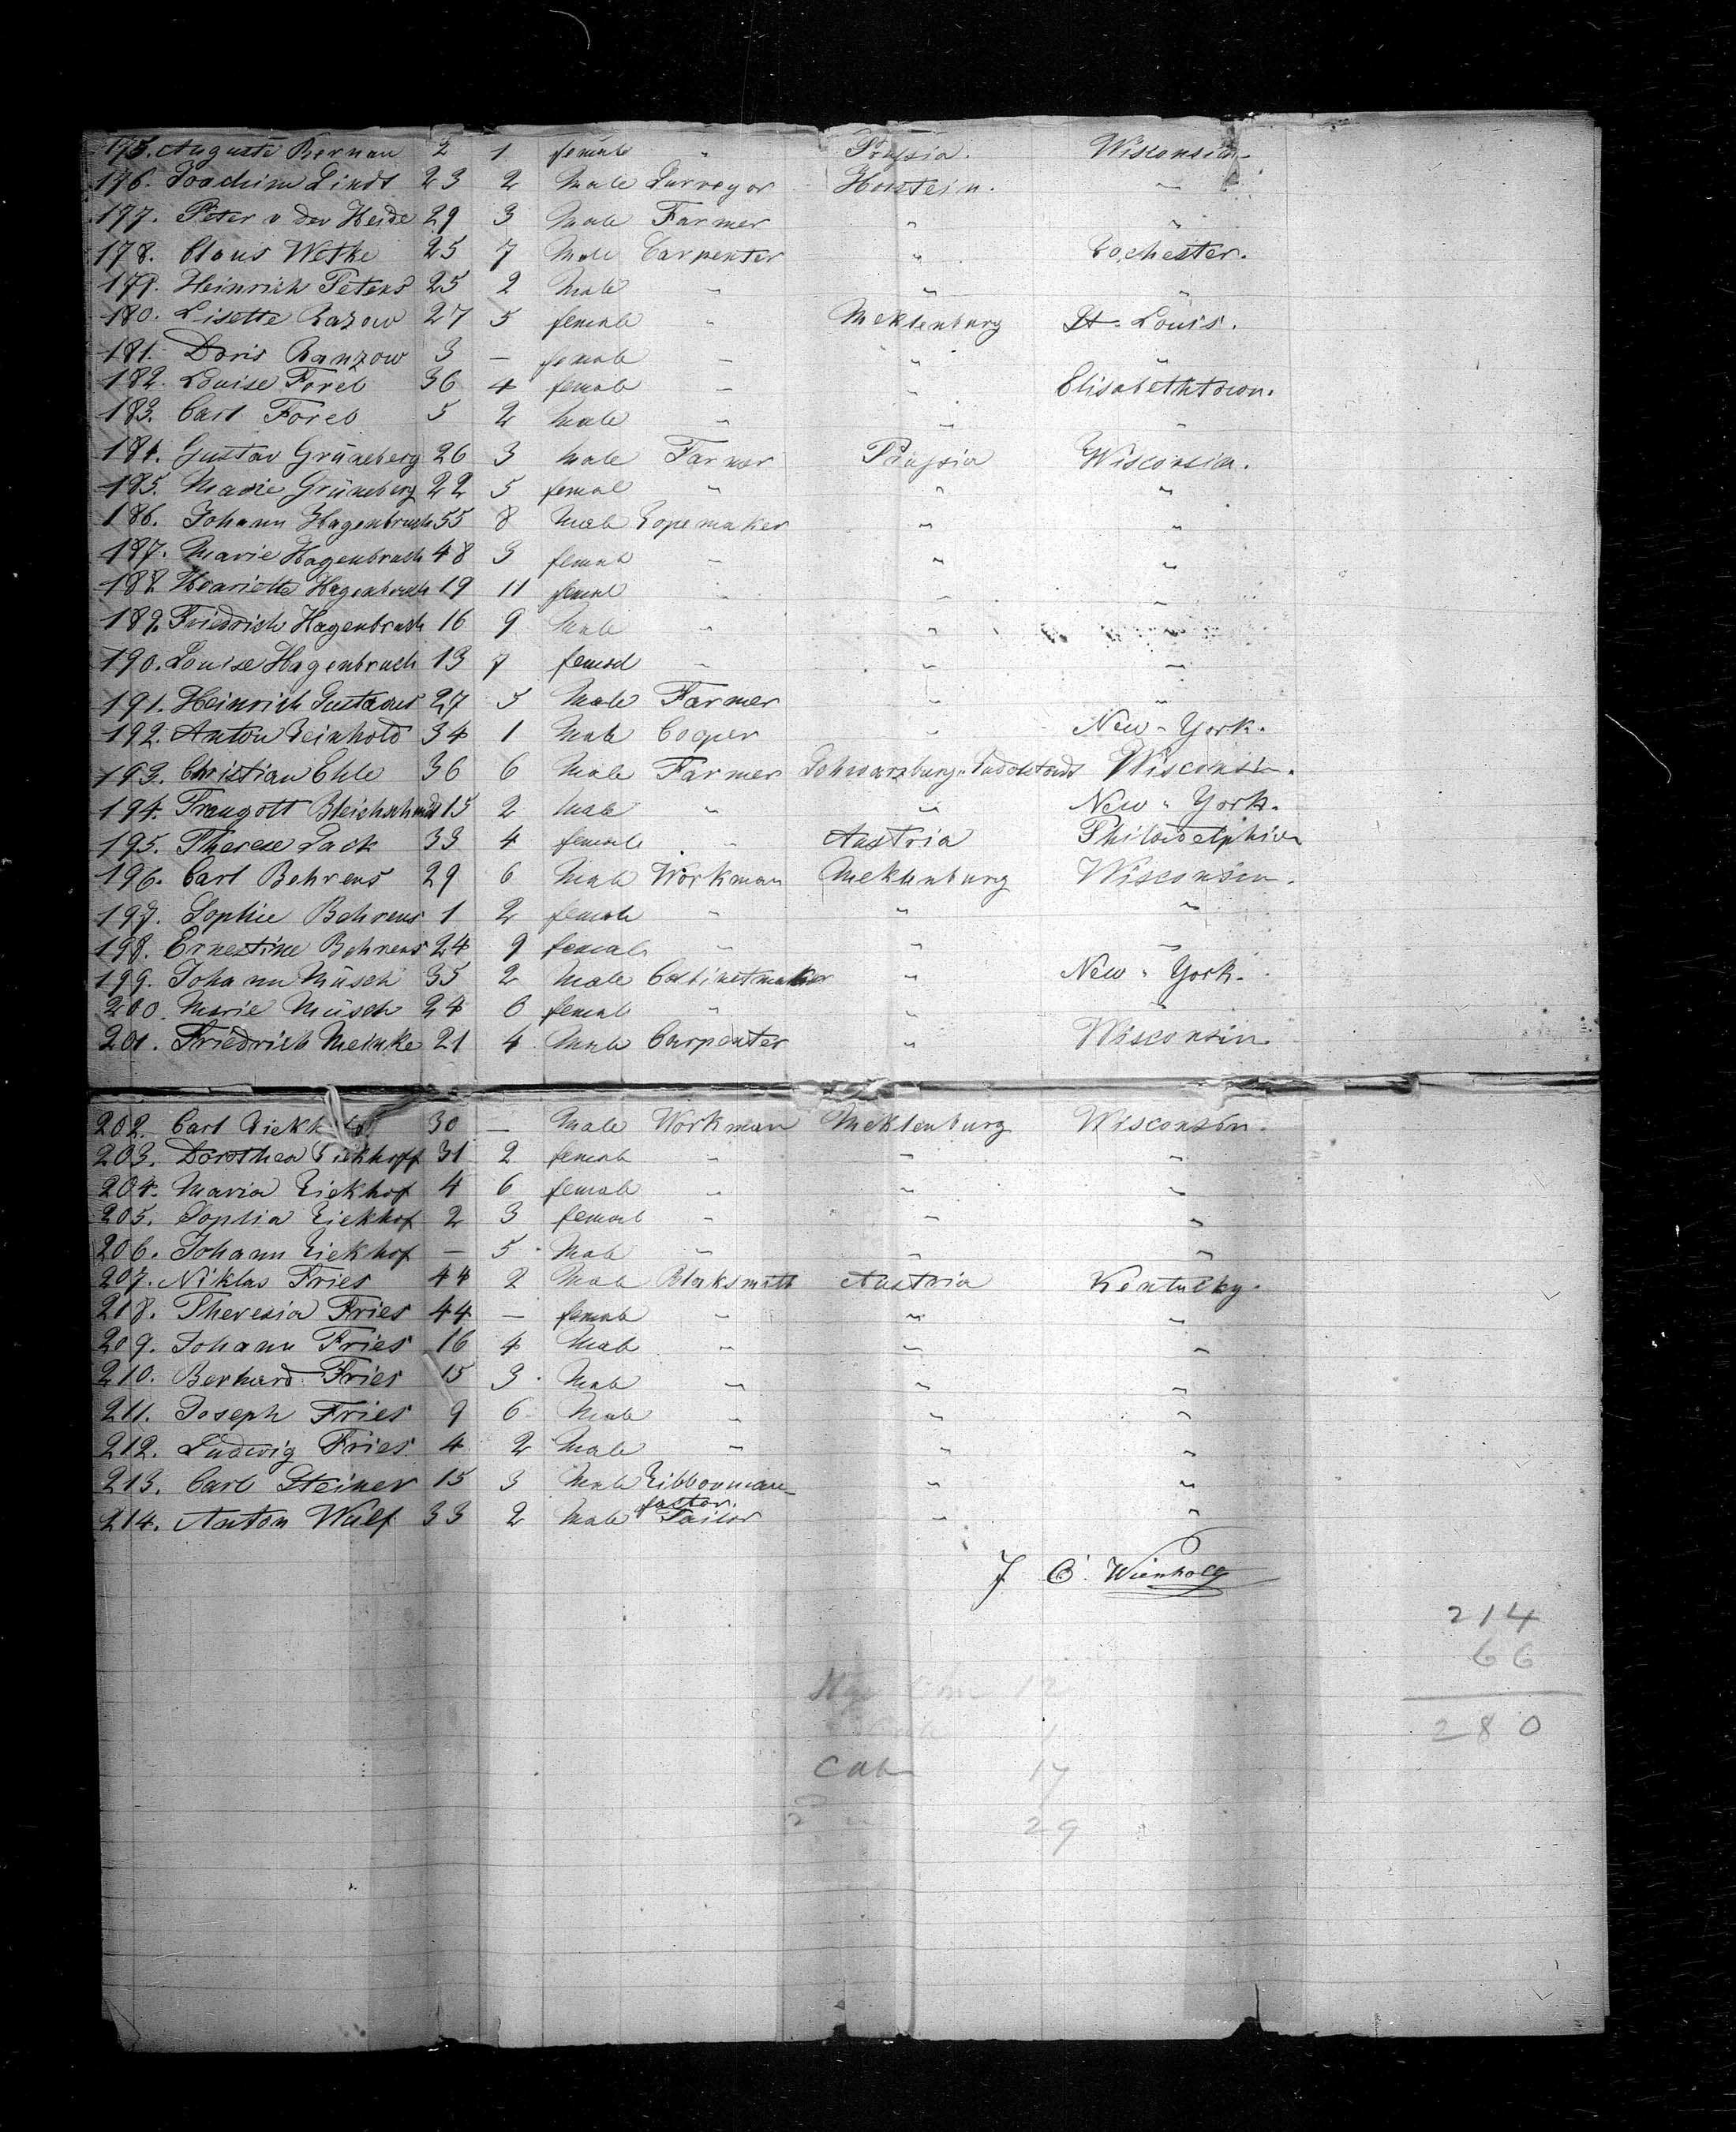 175. Auguste Bernau 2 1 female " Prussia. Wisconsin.
176. Joachim Lindt 23 2 Male Surveyor Horstein. "
177. Peter v der Heide 29 3 Male Farmer " "
178. Claus Wethe 25 7 Male Carpenter " Rochester.
179. Heinrich Peters 25 2 Male " " "
180. Lisette Razow 27 5 female " Meklenburg St. Louis.
181. Doris Ranzow 3 — female " " "
182. Louise Forel 36 4 female " " Elisabethtown.
183. Carl Forel 5 2 Male " " "
184. Gustav Grüneberg 26 3 Male Farmer Prussia Wisconsin.
185. Marie Grüneberg 22 5 femal " " "
186. Johann Hagenbruch 55 8 Male Ropemaker " "
187. Marie Hagenbruch 48 3 female " " "
188. Henriette Hagenbruch 19 11 femal " " "
189. Friedrich Hagenbruch 16 9 Male " " "
190. Louise Hagenbruch 13 7 femal " " "
191. Heinrich Gustavus 27 5 Male Farmer " "
192. Anton Reinhold 34 1 Male Cooper " New-York.
193. Christian Ehle 36 6 Male Farmer Schwarzburg-Rudolstadt Wisconsin.
194. Traugott Bleichschmidt 15 2 Male " " New-York.
195. Therese Pack 33 4 female " Austria Philadelphia
196. Carl Behrens 29 6 Male Workman Meklenburg Wisconsin.
197. Sophie Behrens 1 2 female " " "
198. Ernestine Behrens 24 9 female " " "
199. Johann Müsch 35 2 Male Cabinetmaker " New-York.
200. Marie Müsch 24 6 female " " "
201. Friedrich Meinke 21 4 Male Carpenter " Wisconsin.
202. Carl 30 — Male Workman Meklenburg Wisconsin.
203. Dorothea Eickhoff 31 2 female " " "
204. Maria Eickhof 4 6 female " " "
205. Sophia Eickhof 2 3 female " " "
206. Johann Eickhof — 5 Male " " "
207. Niklas Fries 44 2 Male Blaksmith Austria Kentucky.
218. Theresia Fries 44 — female " " "
209. Johann Fries 16 4 Male " " "
210. Berhard Fries 15 3 Male " " "
211. Joseph Fries 9 6 Male " " "
212. Ludwig Fries 4 2 Male " " "
213. Carl Steiner 15 3 Male Ribbonman- " "
factor.
214. Anton Wulf 33 2 Male Tailor " "
J C Wienholz
214
66
280
12
1
Cab 17
2 " 29